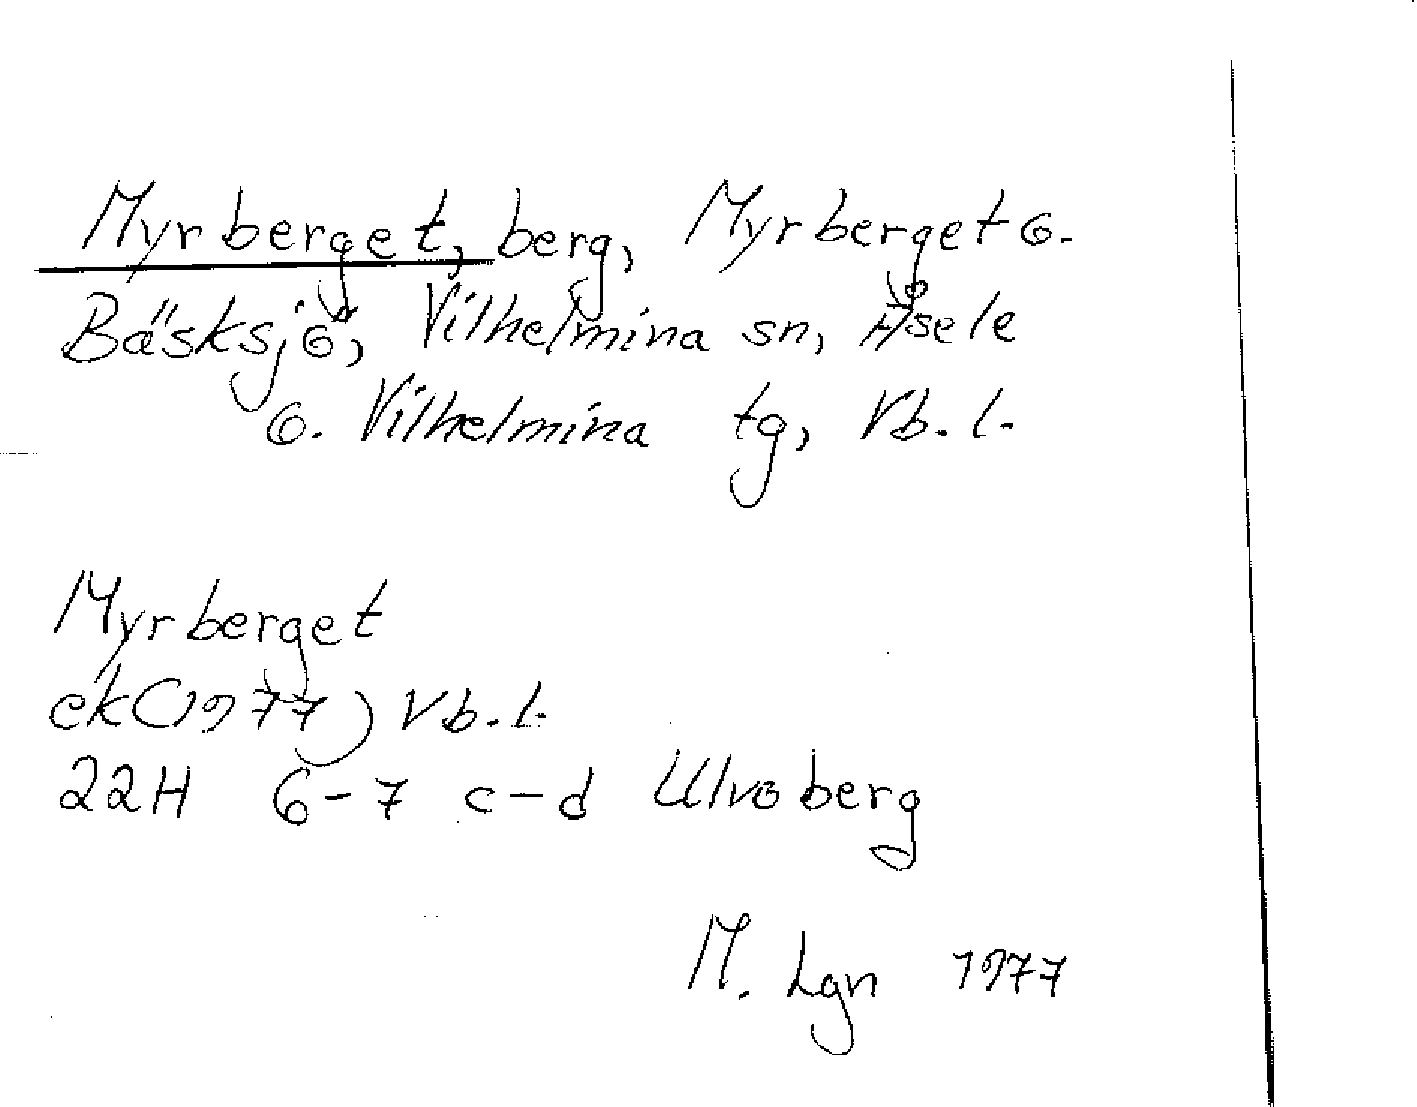 Myrberget, berg, Myrberget o.
Bäsksjö, Vilhelmina sn, Åsele
o. Vilhelmina tg, Vb. l.
Myrberget
ek(1977) Vb. l.
22H 6-7 c-d Ulvoberg
M. Lgn 1977